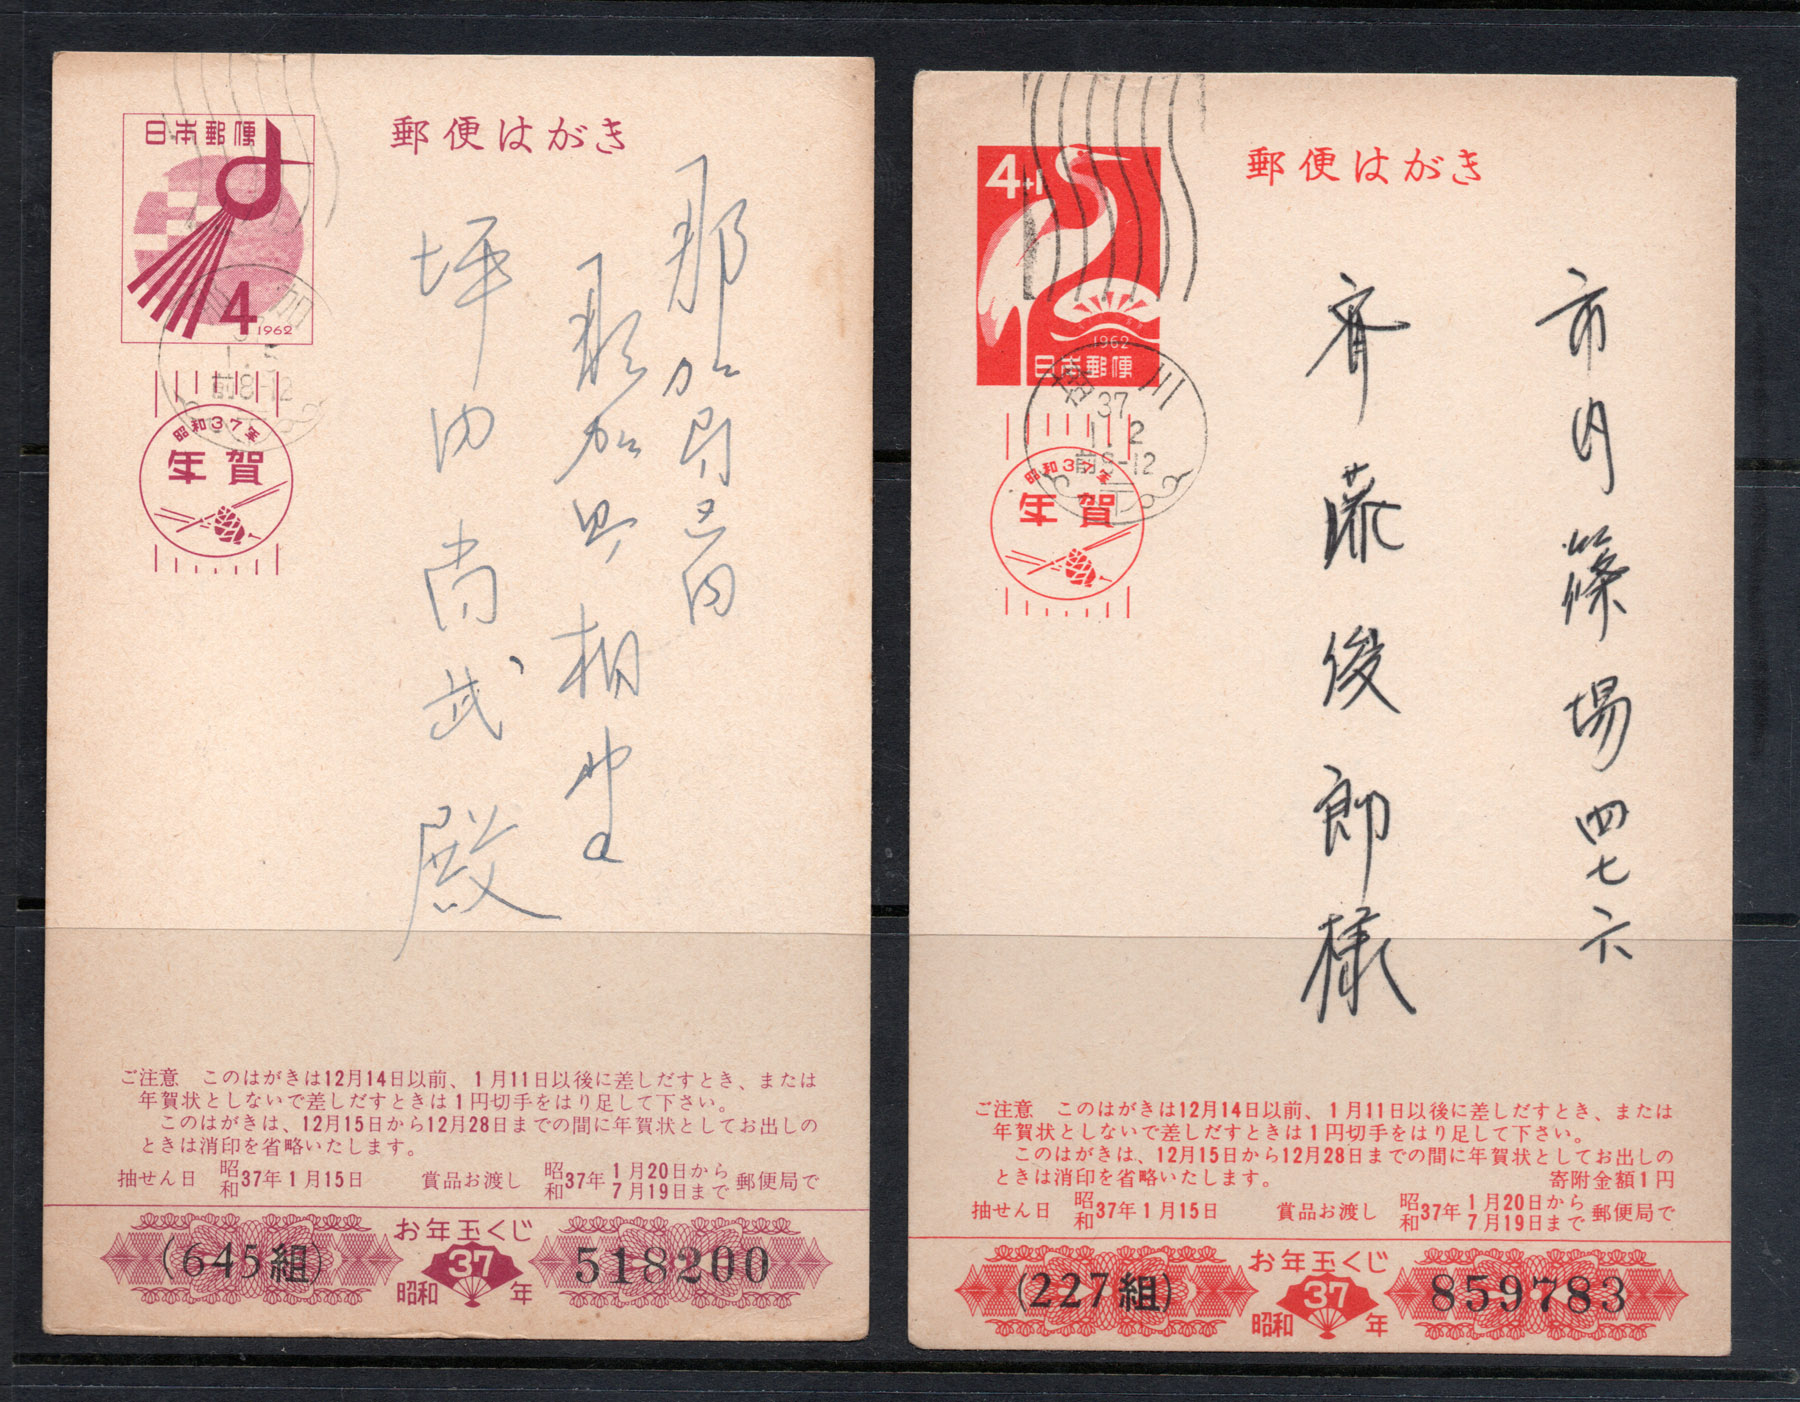 日本郵便
4
1962
郵便はがき
加
37
前8-12
昭和37年
年賀
坪内尚武殿
ご注意 このはがきは12月14日以前、1月11日以後に差しだすとき、または
年賀状としないで差しだすときは1円切手をはり足して下さい。
このはがきは、12月15日から12月28日までの間に年賀状としてお出しの
ときは消印を省略いたします。
抽せん日 昭和37年1月15日 賞品お渡し 昭和37年 1月20日から 7月19日まで 郵便局で
(645組)
お年玉くじ
昭和37年
518200
4+1
1962
日本郵便
郵便はがき
掛川
37
1.2
前8-12
昭和37年
年賀
市内篠場四七六
齊藤俊郎様
ご注意 このはがきは12月14日以前、1月11日以後に差しだすとき、または
年賀状としないで差しだすときは1円切手をはり足して下さい。
このはがきは、12月15日から12月28日までの間に年賀状としてお出しの
ときは消印を省略いたします。 寄附金額1円
抽せん日 昭和37年1月15日 賞品お渡し 昭和37年 1月20日から 7月19日まで 郵便局で
(227組)
お年玉くじ
昭和37年
859783